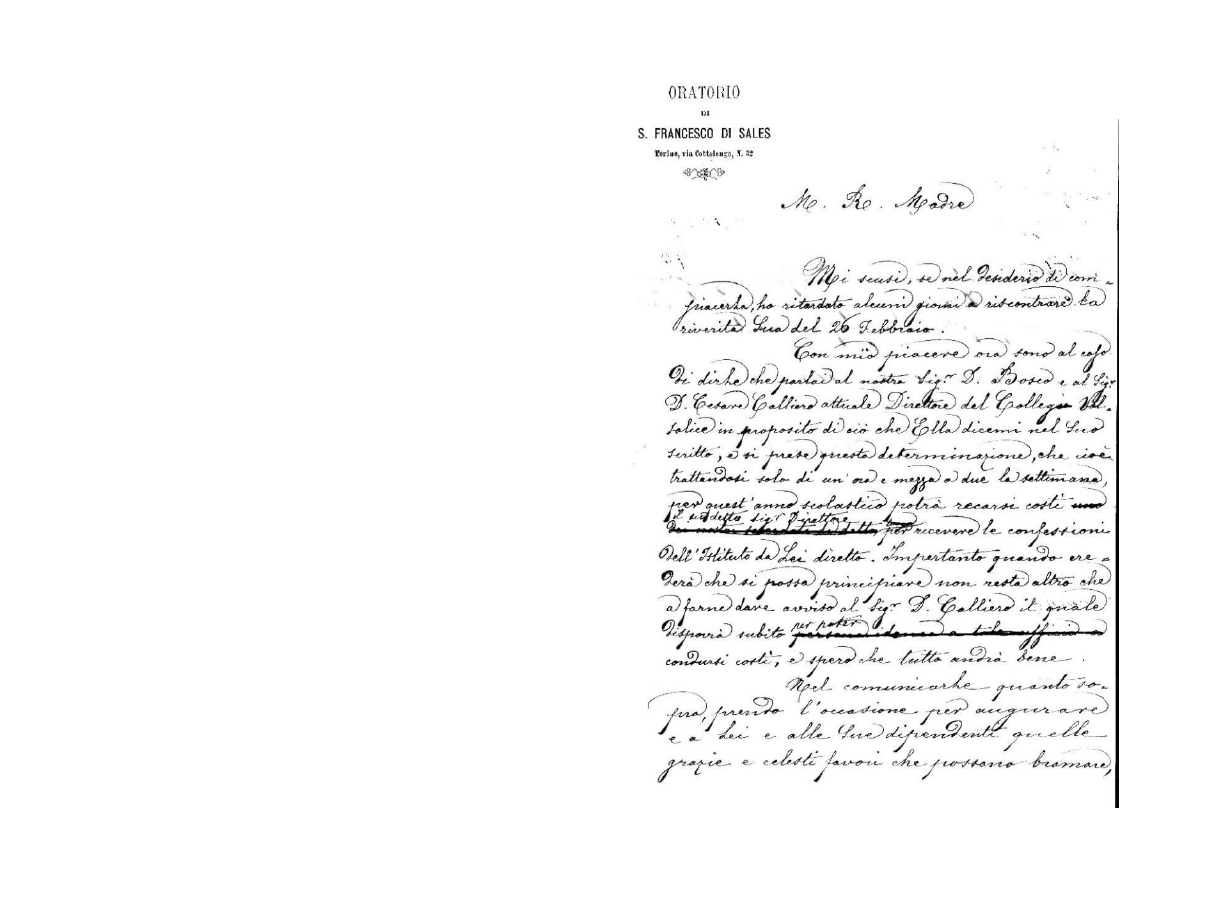 ORATORIO
DI
S. FRANCESCO DI SALES
Torino, via Cottolengo, N. 32
M. R. Madre
Mi scusi, se nel desiderio di com-
piacerla, ho ritardato alcuni giorni a riscontrare la
riverita Sua del 26 Febbraio.
Con mio piacere ora sono al caso
di dirle che parlai al nostro Sig.r D. Bosco e al Sig.r
D. Cesare Calliero attuale Direttore del Collegio Val-
salice in proposito di ciò che Ella dicemi nel Suo
scritto, e si prese questa determinazione, che cioè
trattandosi solo di un'ora e mezza a due la settimana,
per quest'anno scolastico potrà recarsi costì uno
il suddetto Sig.r Direttore
dei nostri sacerdoti di detto per ricevere le confessioni
dell'Istituto da Lei diretto. Impertanto quando cre-
derà che si possa principiare non resta altro che
a farne dare avviso al Sig.r D. Calliero il quale
per poter
disporrà subito persona idonea a tale ufficio a
condursi costì, e spero che tutto andrà bene.
Nel comunicarle quanto so-
pra, prendo l'occasione per augurare
e a Lei e alle Sue dipendenti quelle
grazie e celesti favori che possano bramare,